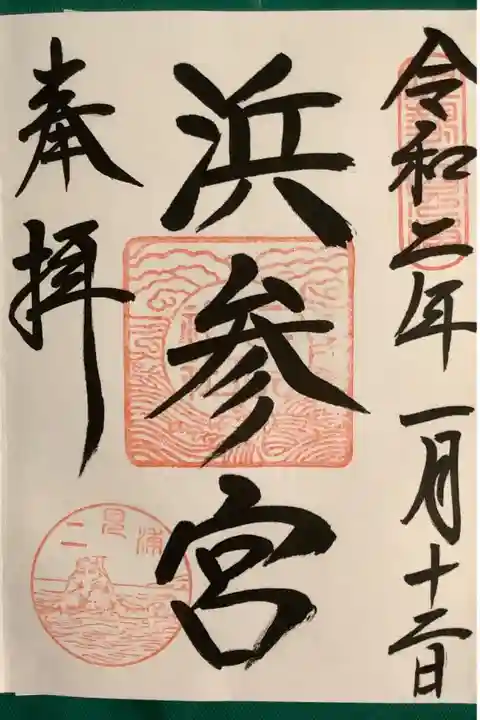 令和二年一月十二日
浜参宮
奉拝
二見浦